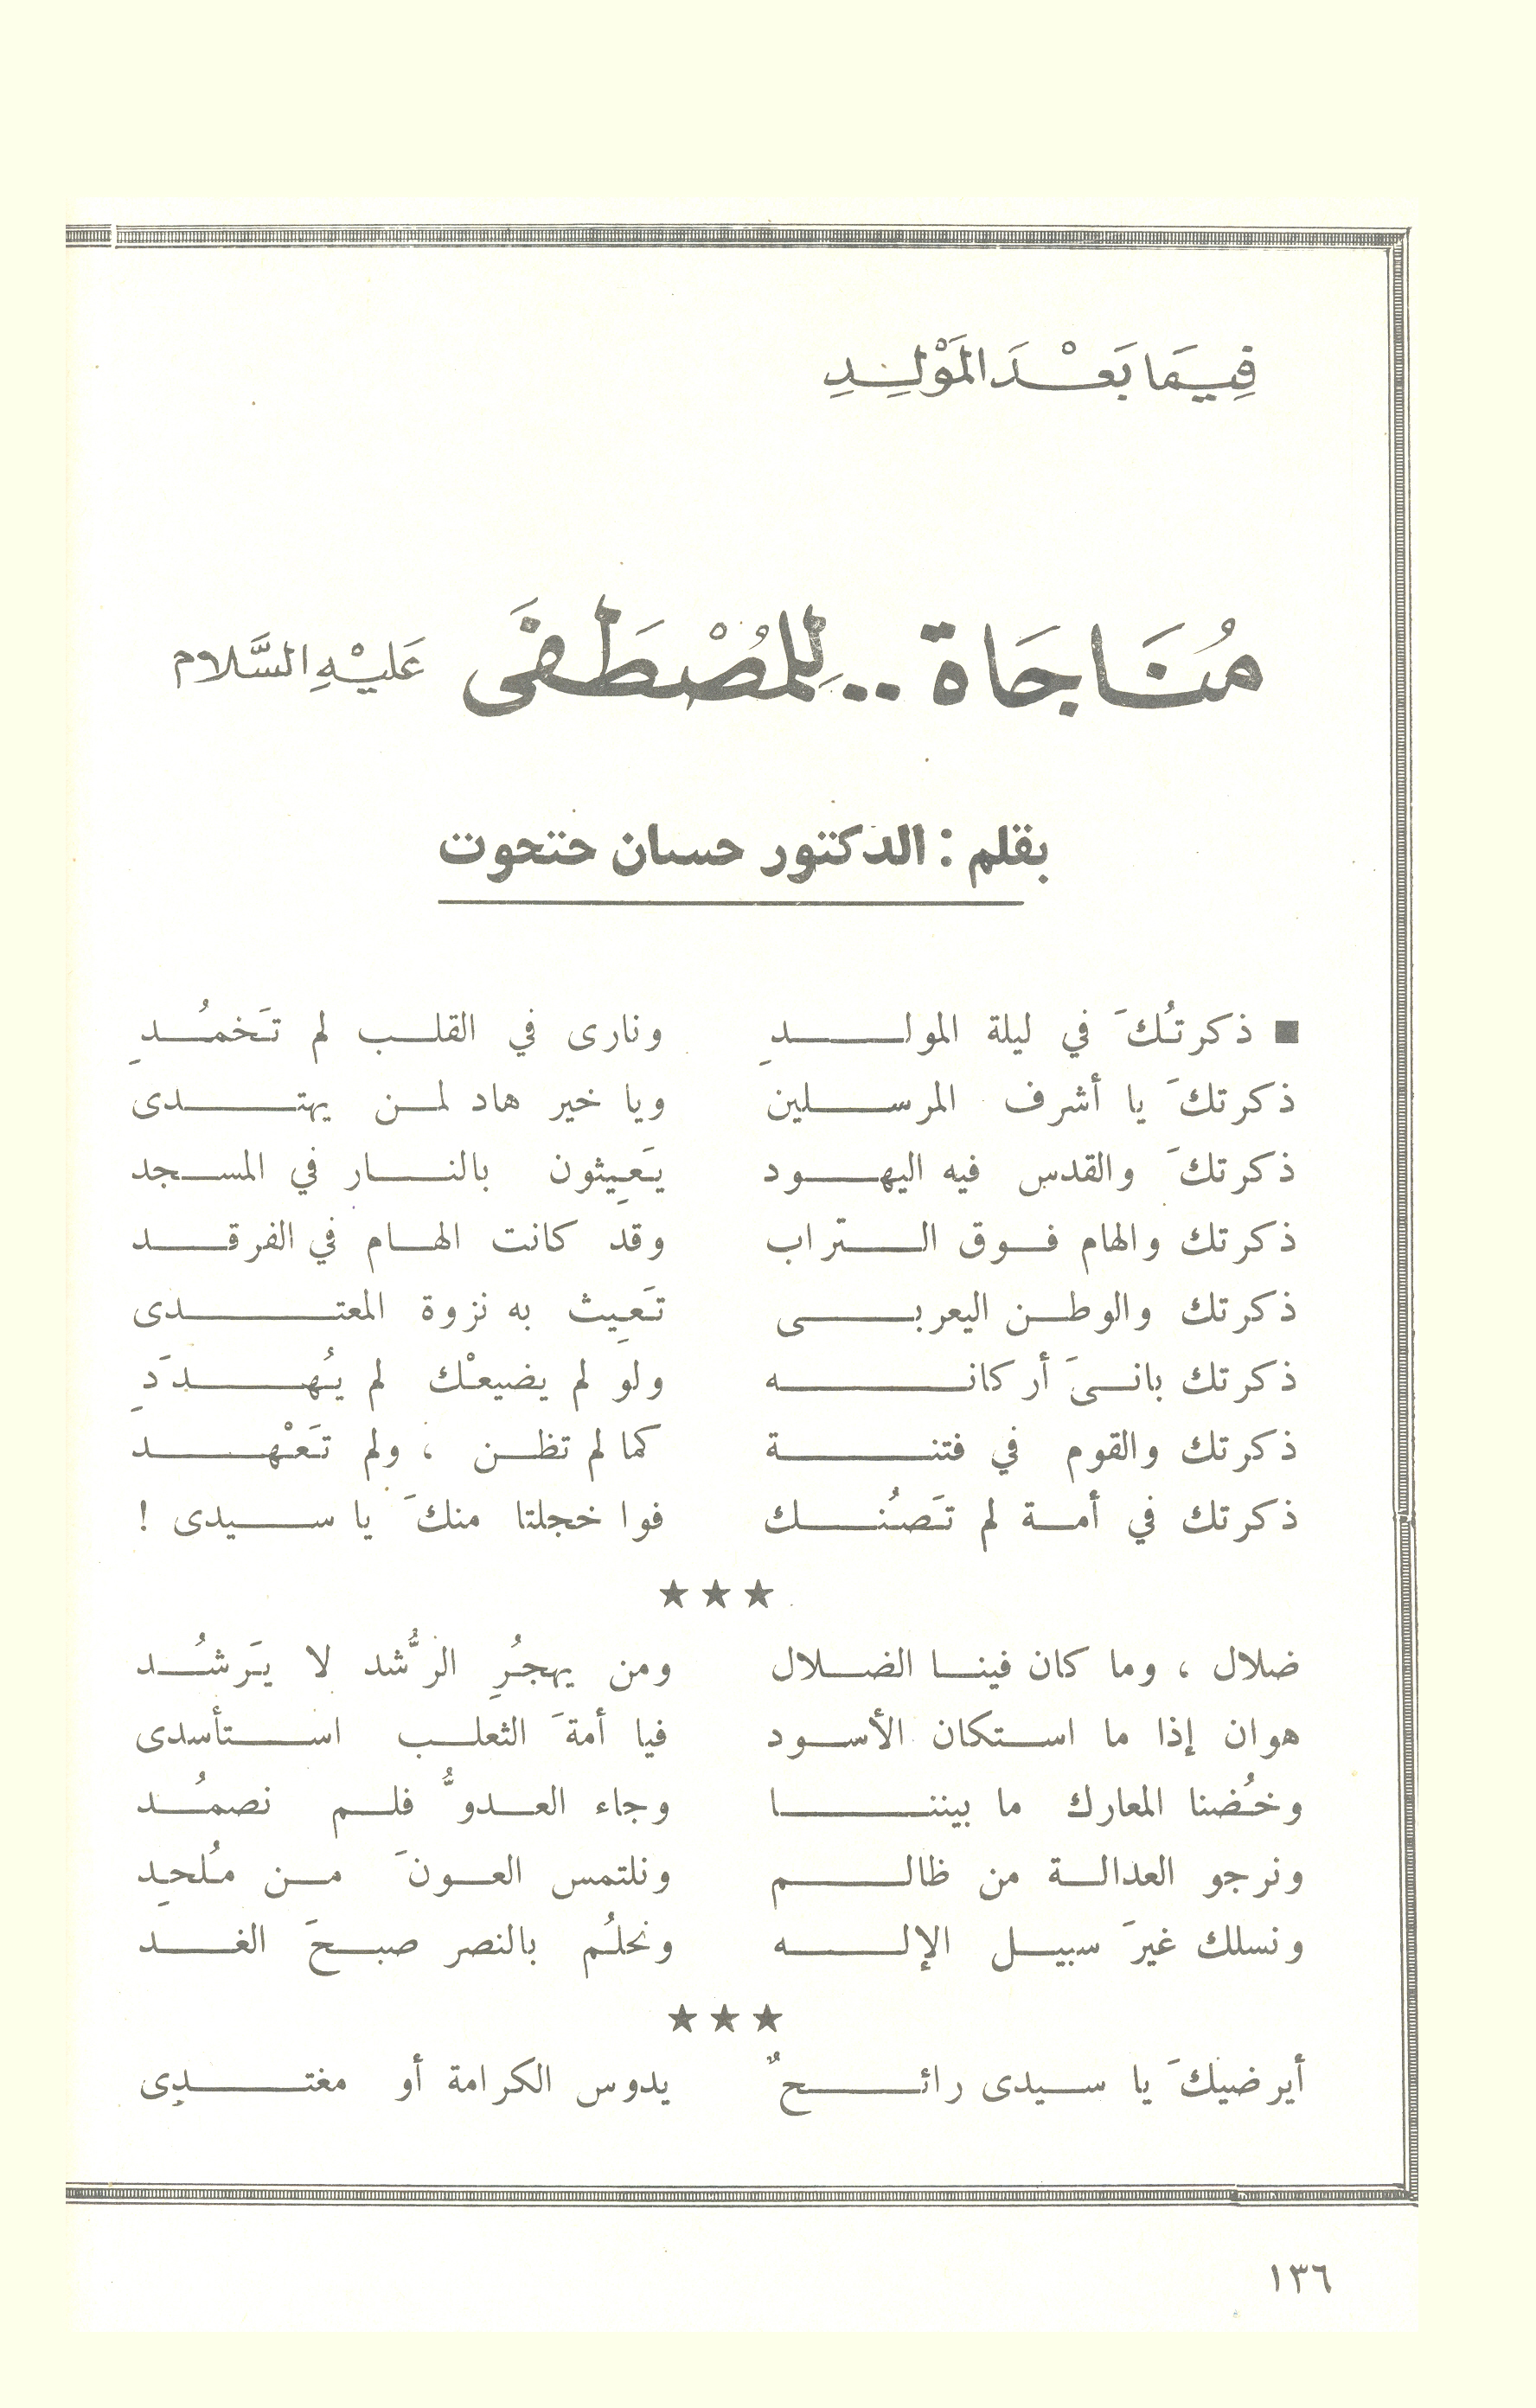 فِيمَا بَعْدَ المَوْلِدِ
مُنَاجَاة .. لِلمُصْطَفَى عَلَيْهِ السَّلام
بقلم : الدكتور حسان حتحوت
■ ذكرتُكَ في ليلة المولدِ ونارى في القلب لم تَخمُدِ
ذكرتكَ يا أشرف المرسلين ويا خير هاد لمن يهتدى
ذكرتكَ والقدس فيه اليهود يَعِيثون بالنار في المسجد
ذكرتك والهام فوق التراب وقد كانت الهام في الفرقد
ذكرتك والوطن اليعربى تَعِيث به نزوة المعتدى
ذكرتك بانىَ أركانه ولو لم يضيعْك لم يُهدَدِ
ذكرتك والقوم في فتنة كما لم تظن ، ولم تَعْهد
ذكرتك في أمة لم تَصُنك فوا خجلتا منكَ يا سيدى !
★★★
ضلال ، وما كان فينا الضلال ومن يهجُرِ الرُّشد لا يَرشُد
هوان إذا ما استكان الأسود فيا أمةَ الثعلب استأسدى
وخُضنا المعارك ما بيننا وجاء العدوُّ فلم نصمُد
ونرجو العدالة من ظالم ونلتمس العونَ من مُلحِد
ونسلك غيرَ سبيل الإله ونحلُم بالنصر صبحَ الغد
★★★
أيرضيكَ يا سيدى رائحٌ يدوس الكرامة أو مغتدِى
١٣٦